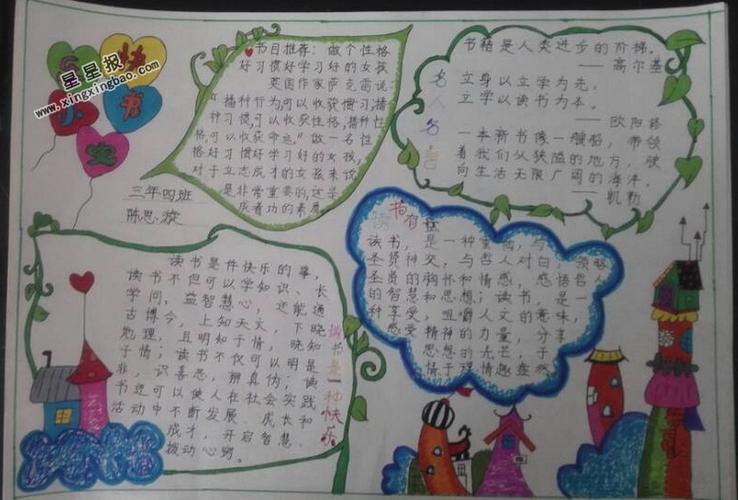 星星报
www.xingxingbao.com
快
书
三年四班
陈思
书目推荐：做个性格
好习惯好学习好的女孩
英国作家萨克雷说
“播种行为，可以收获习惯；播
种习惯，可以收获性格；播种性
格，可以收获命运。”做一名性
格好习惯好学习好的女孩，
对于立志成才的女孩来说
是非常重要的，这是
成者功的素质
名人名言
书籍是人类进步的阶梯。
——高尔基
立身以立学为先，
立学以读书为本。
——欧阳修
一本新书像一艘船，带领
着我们从狭隘的地方，驶
向生活无限广阔的海洋。
——凯勒
读书是一种快乐
读书是件快乐的事，
读书不但可以学知识、长
学问，益智慧心，还能通
古博今，上知天文，下晓
地理；且明知于情，晓知
于情；读书不仅可以明是
非，识善恶，辨真伪；读
书还可以使人在社会实践
活动中不断发展、成长和
成才，开启智慧、
拨动心窍。
读书有
读书，是一种
圣贤神交，与哲人对白，领略
圣贤的胸怀和情感，感悟哲人
的智慧和思想；读书，是一
种享受，咀嚼人文的意味，
感受精神的力量，分享
思想的光芒，于
情于理情趣盎然